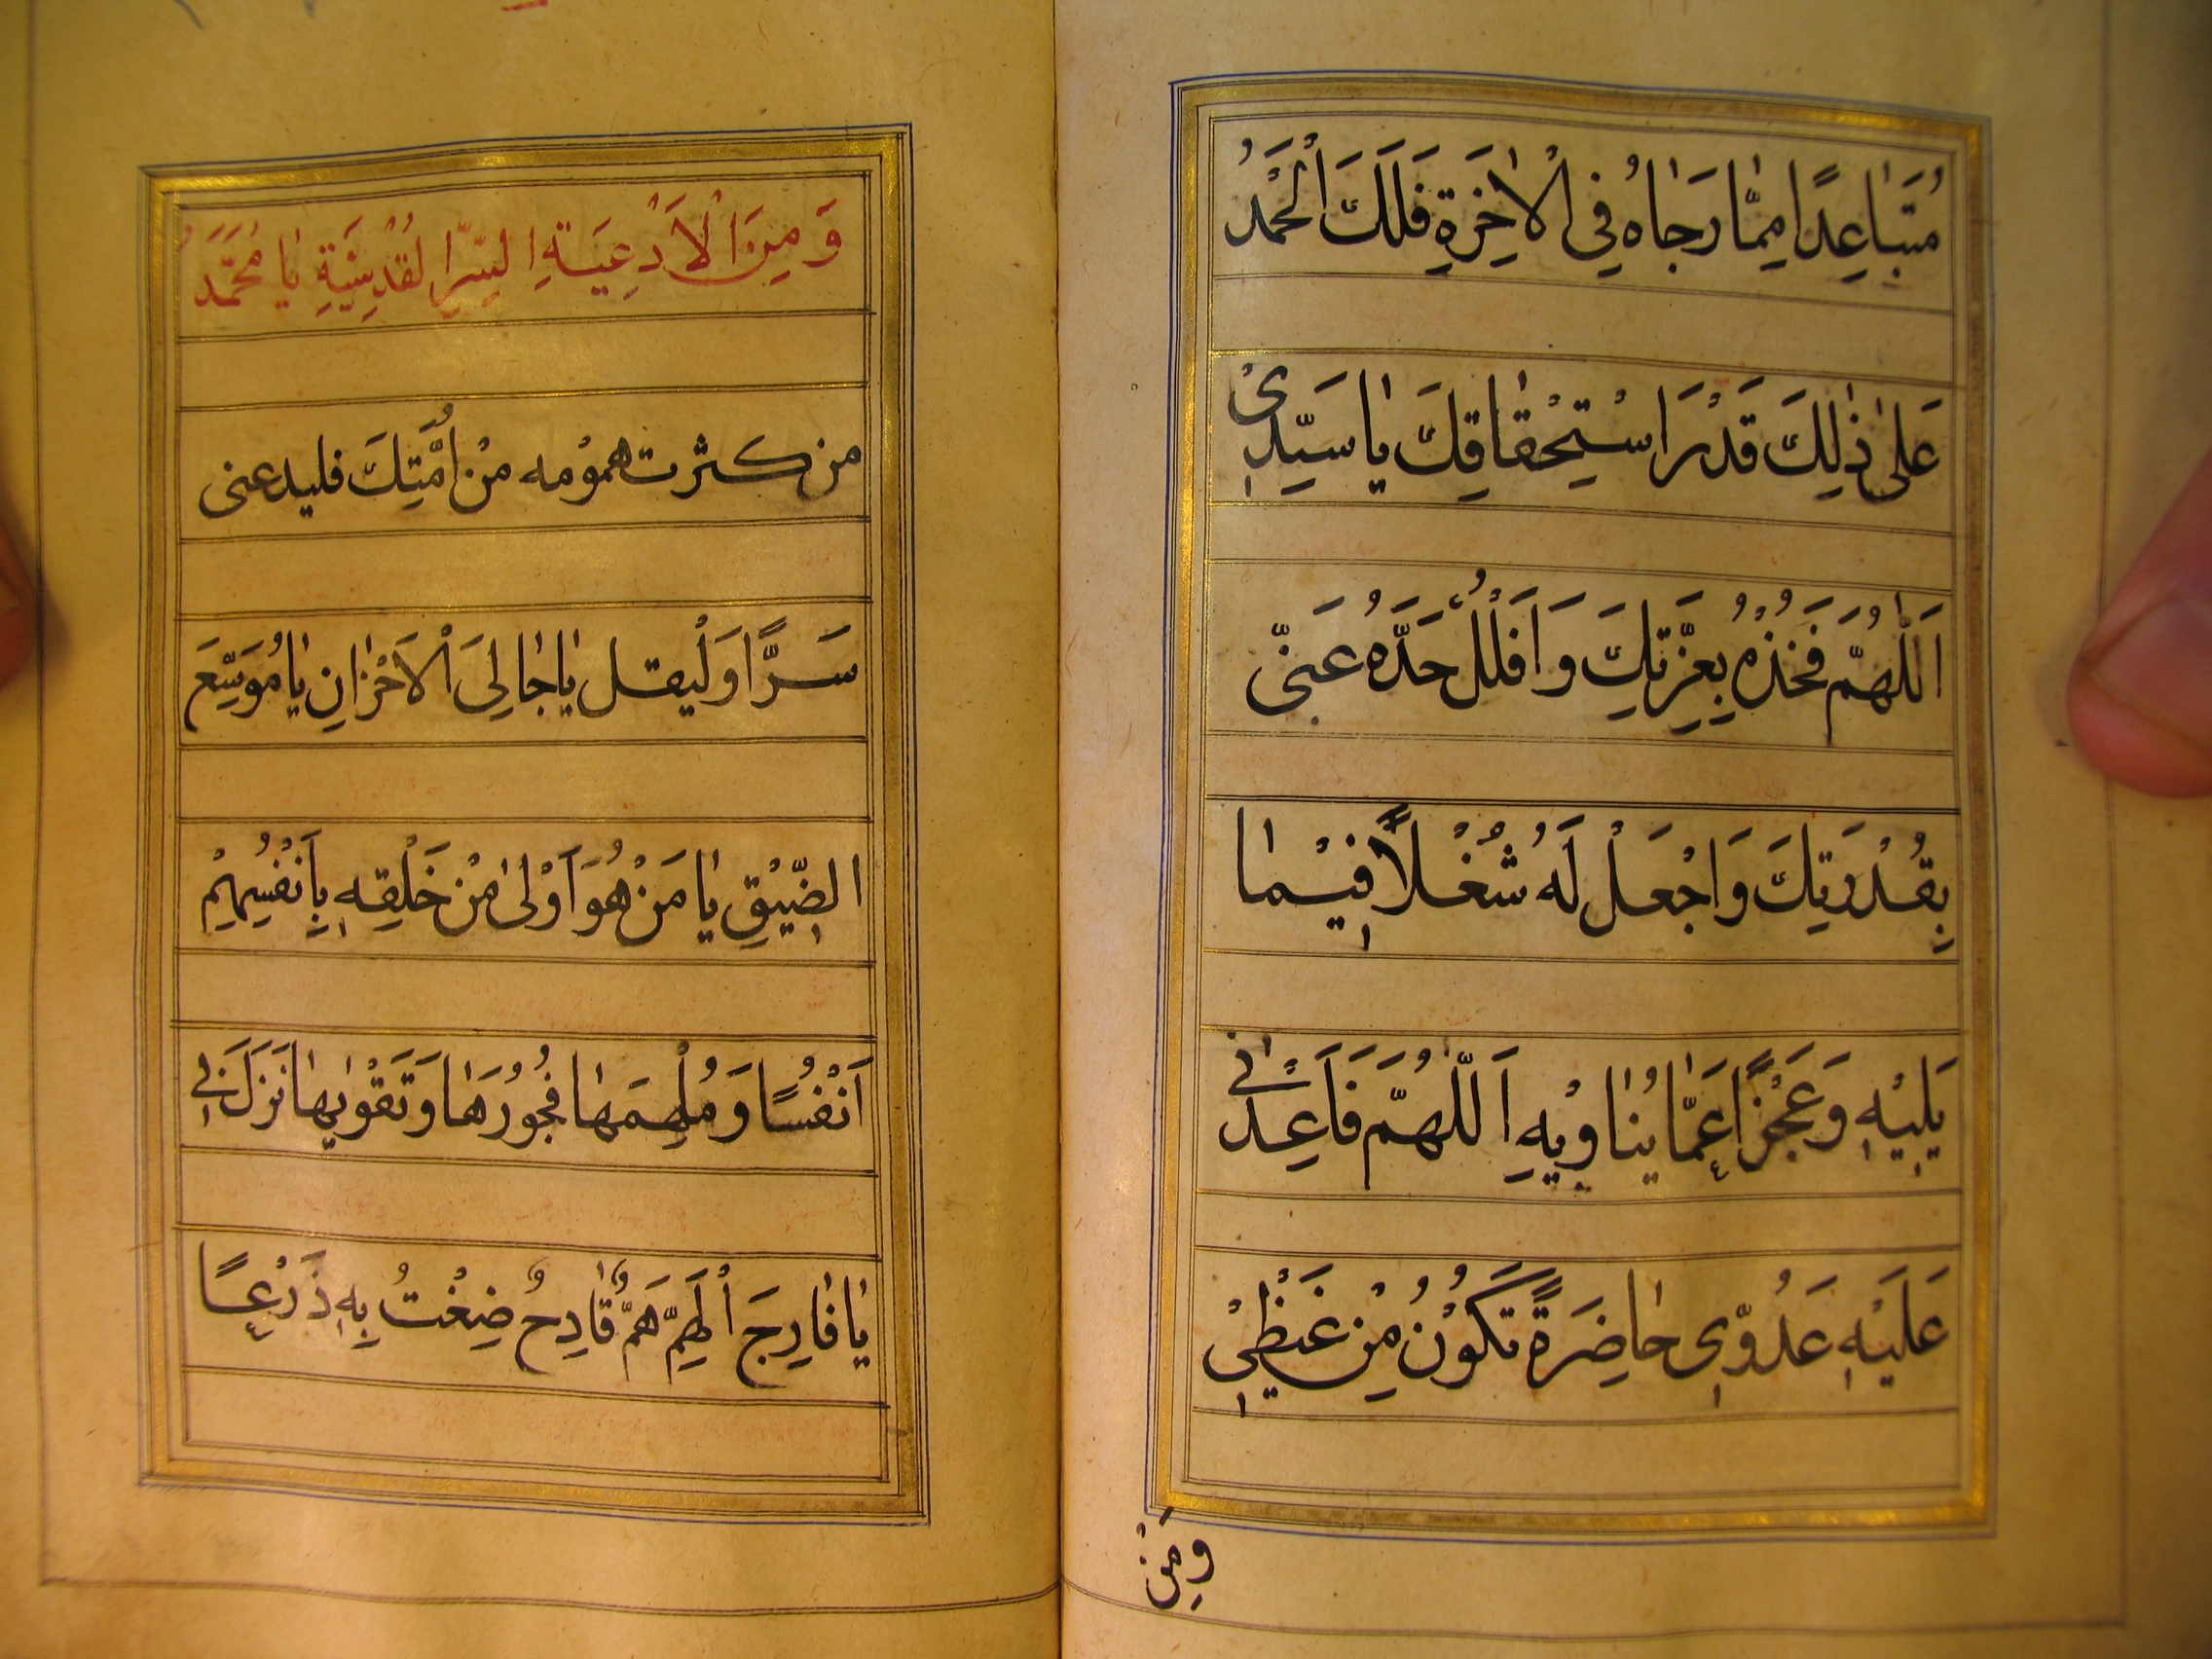 مُتَبٰاعِدًا مِمّٰا رَجٰاهُ فِي الْاٰخِرَةِ فَلَكَ الْحَمْدُ
عَلىٰ ذٰلِكَ قَدْرَ اسْتِحْقٰاقِكَ يٰا سَيِّدِىْ
اَللّٰهُمَّ فَخُذْهُ بِعِزَّتِكَ وَافْلُلْ حَدَّهُ عَنّى
بِقُدْرَتِكَ وَاجْعَلْ لَهُ شُغْلًا فِيْمٰا
يَلِيْهِ وَعَجْزًا عَمّٰا يُنٰاوِيْهِ اَللّٰهُمَّ فَاَعِدْنى
عَلَيْهِ عَدُوِّى حٰاضِرَةً تَكُوْنُ مِنْ غَيْظِيْ
وَمِنْ
وَمِنَ الْاَدْعِيَةِ السِّرِّ القُدْسِيَّةِ يٰا مُحَمَّدُ
من كثرت همومه مِنْ اُمَّتِكَ فليدعنى
سَرًّا وَلْيقل يٰا جٰالِىَ الْاَحْزٰانِ يٰا مُوَسِّعَ
الضِّيْقِ يٰا مَنْ هُوَ اَوْلىٰ مِنْ خَلْقِهِ بِاَنْفُسِهِمْ
اَنْفُسًا وَمُلْهِمَهٰا فُجُوْرَهٰا وَتَقْوٰيهٰا نَزَلَ بى
يٰا فٰارِجَ الْهَمِّ هَمٌّ فٰادِحٌ ضِقْتُ بِهِ ذَرْعًا